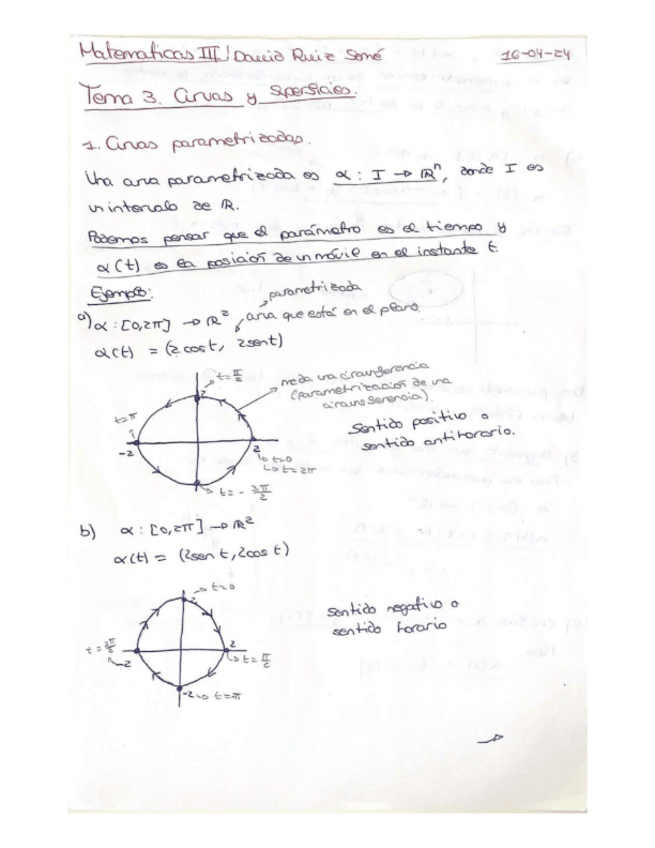 Matematicas III / David Ruiz Somé 16-04-24
Tema 3. Curvas y superficies.
1. Curvas parametrizadas.
Una curva parametrizada es α: I → ℝⁿ, donde I es
un intervalo de ℝ.
Podemos pensar que el parámetro es el tiempo y
α(t) es la posición de un móvil en el instante t.
Ejemplo:
parametrizada
a) α: [0,2π] → ℝ² curva que está en el plano
α(t) = (2cos t, 2sen t)
t=π/2
2
me da una circunferencia
(parametrización de una
circunferencia).
t=π
-2
2
t=0
t=2π
t= - 3π/2
Sentido positivo o
sentido antihorario.
b) α: [0,2π] → ℝ²
α(t) = (2sen t, 2cos t)
t=0
2
t=3π/2
-2
2
t=π/2
-2 t=π
sentido negativo o
sentido horario